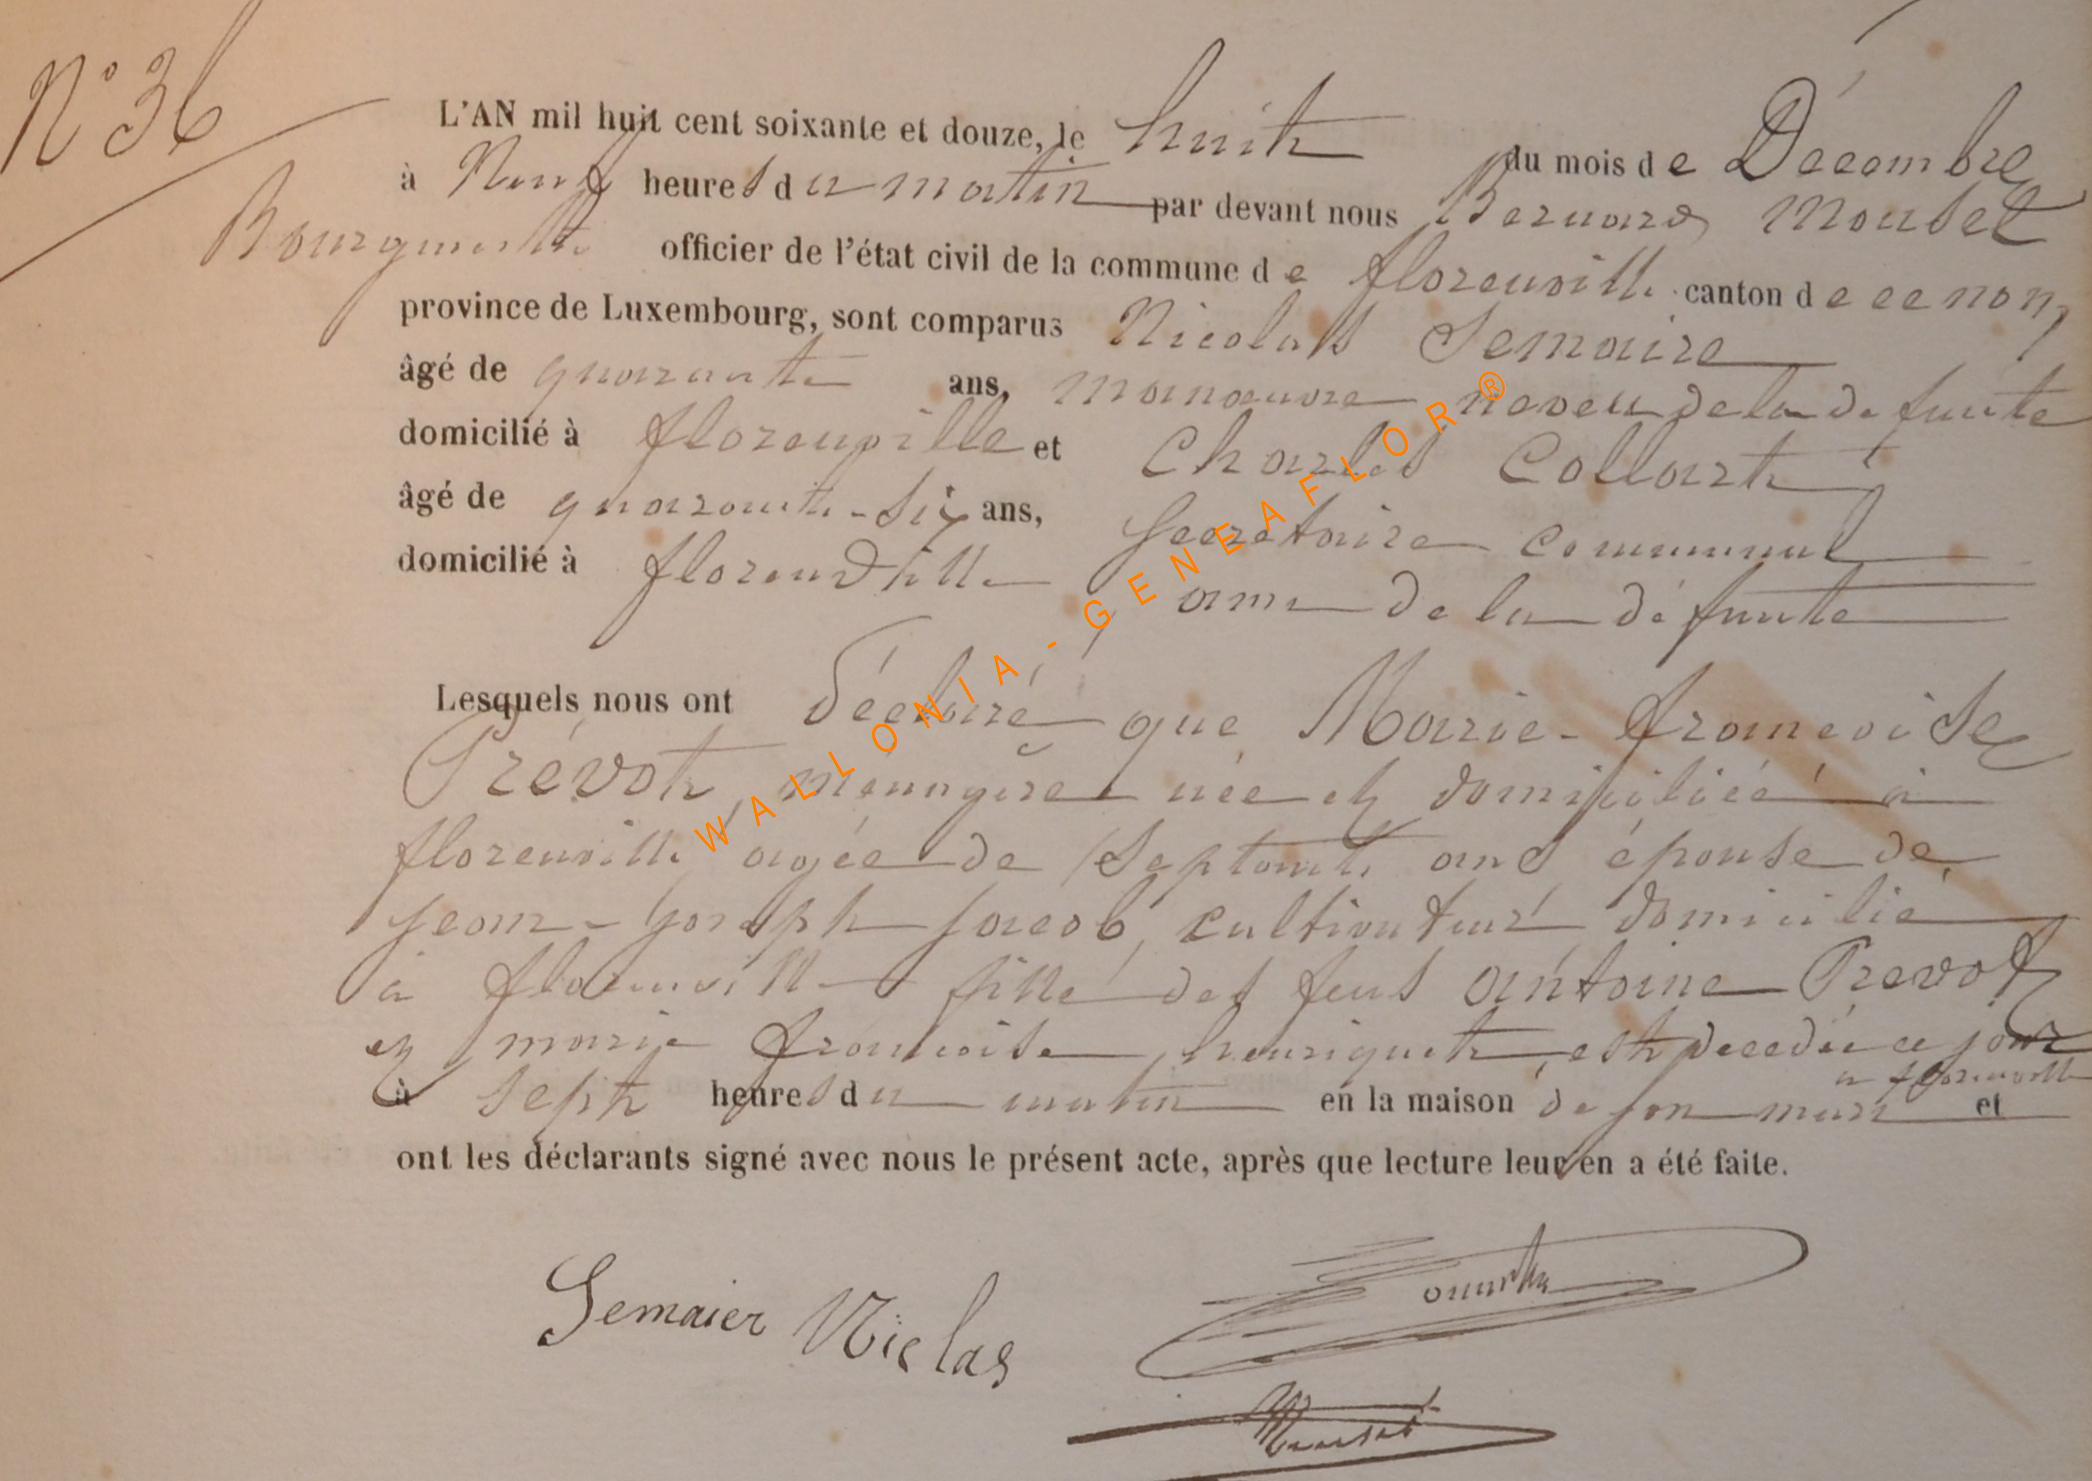 N° 36
L'AN mil huit cent soixante et douze, le huit du mois de Décembre
à Neuf heures du matin par devant nous Bernard Mousel
Bourgmestre officier de l'état civil de la commune de florenville canton de ce nom,
province de Luxembourg, sont comparus Nicolas Semaire
âgé de quarante ans, manœuvre neveu de la défunte
domicilié à florenville et Charles Collart
âgé de quarante-six ans, Secrétaire communal
domicilié à florenville ami de la défunte
Lesquels nous ont déclaré que Marie-françoise
Prévot, ménagère née et domiciliée à
florenville, agée de Septante ans épouse de
Jean-Joseph Jacob, cultivateur, domicilié
à florenville fille des feus Antoine Prevot
et marie françoise henriquet, est decedée ce jour
à sept heures du matin en la maison de son mari à florenville et
ont les déclarants signé avec nous le présent acte, après que lecture leur en a été faite.
Semaier Niclas
WALLONIA-GENEAFLOR®